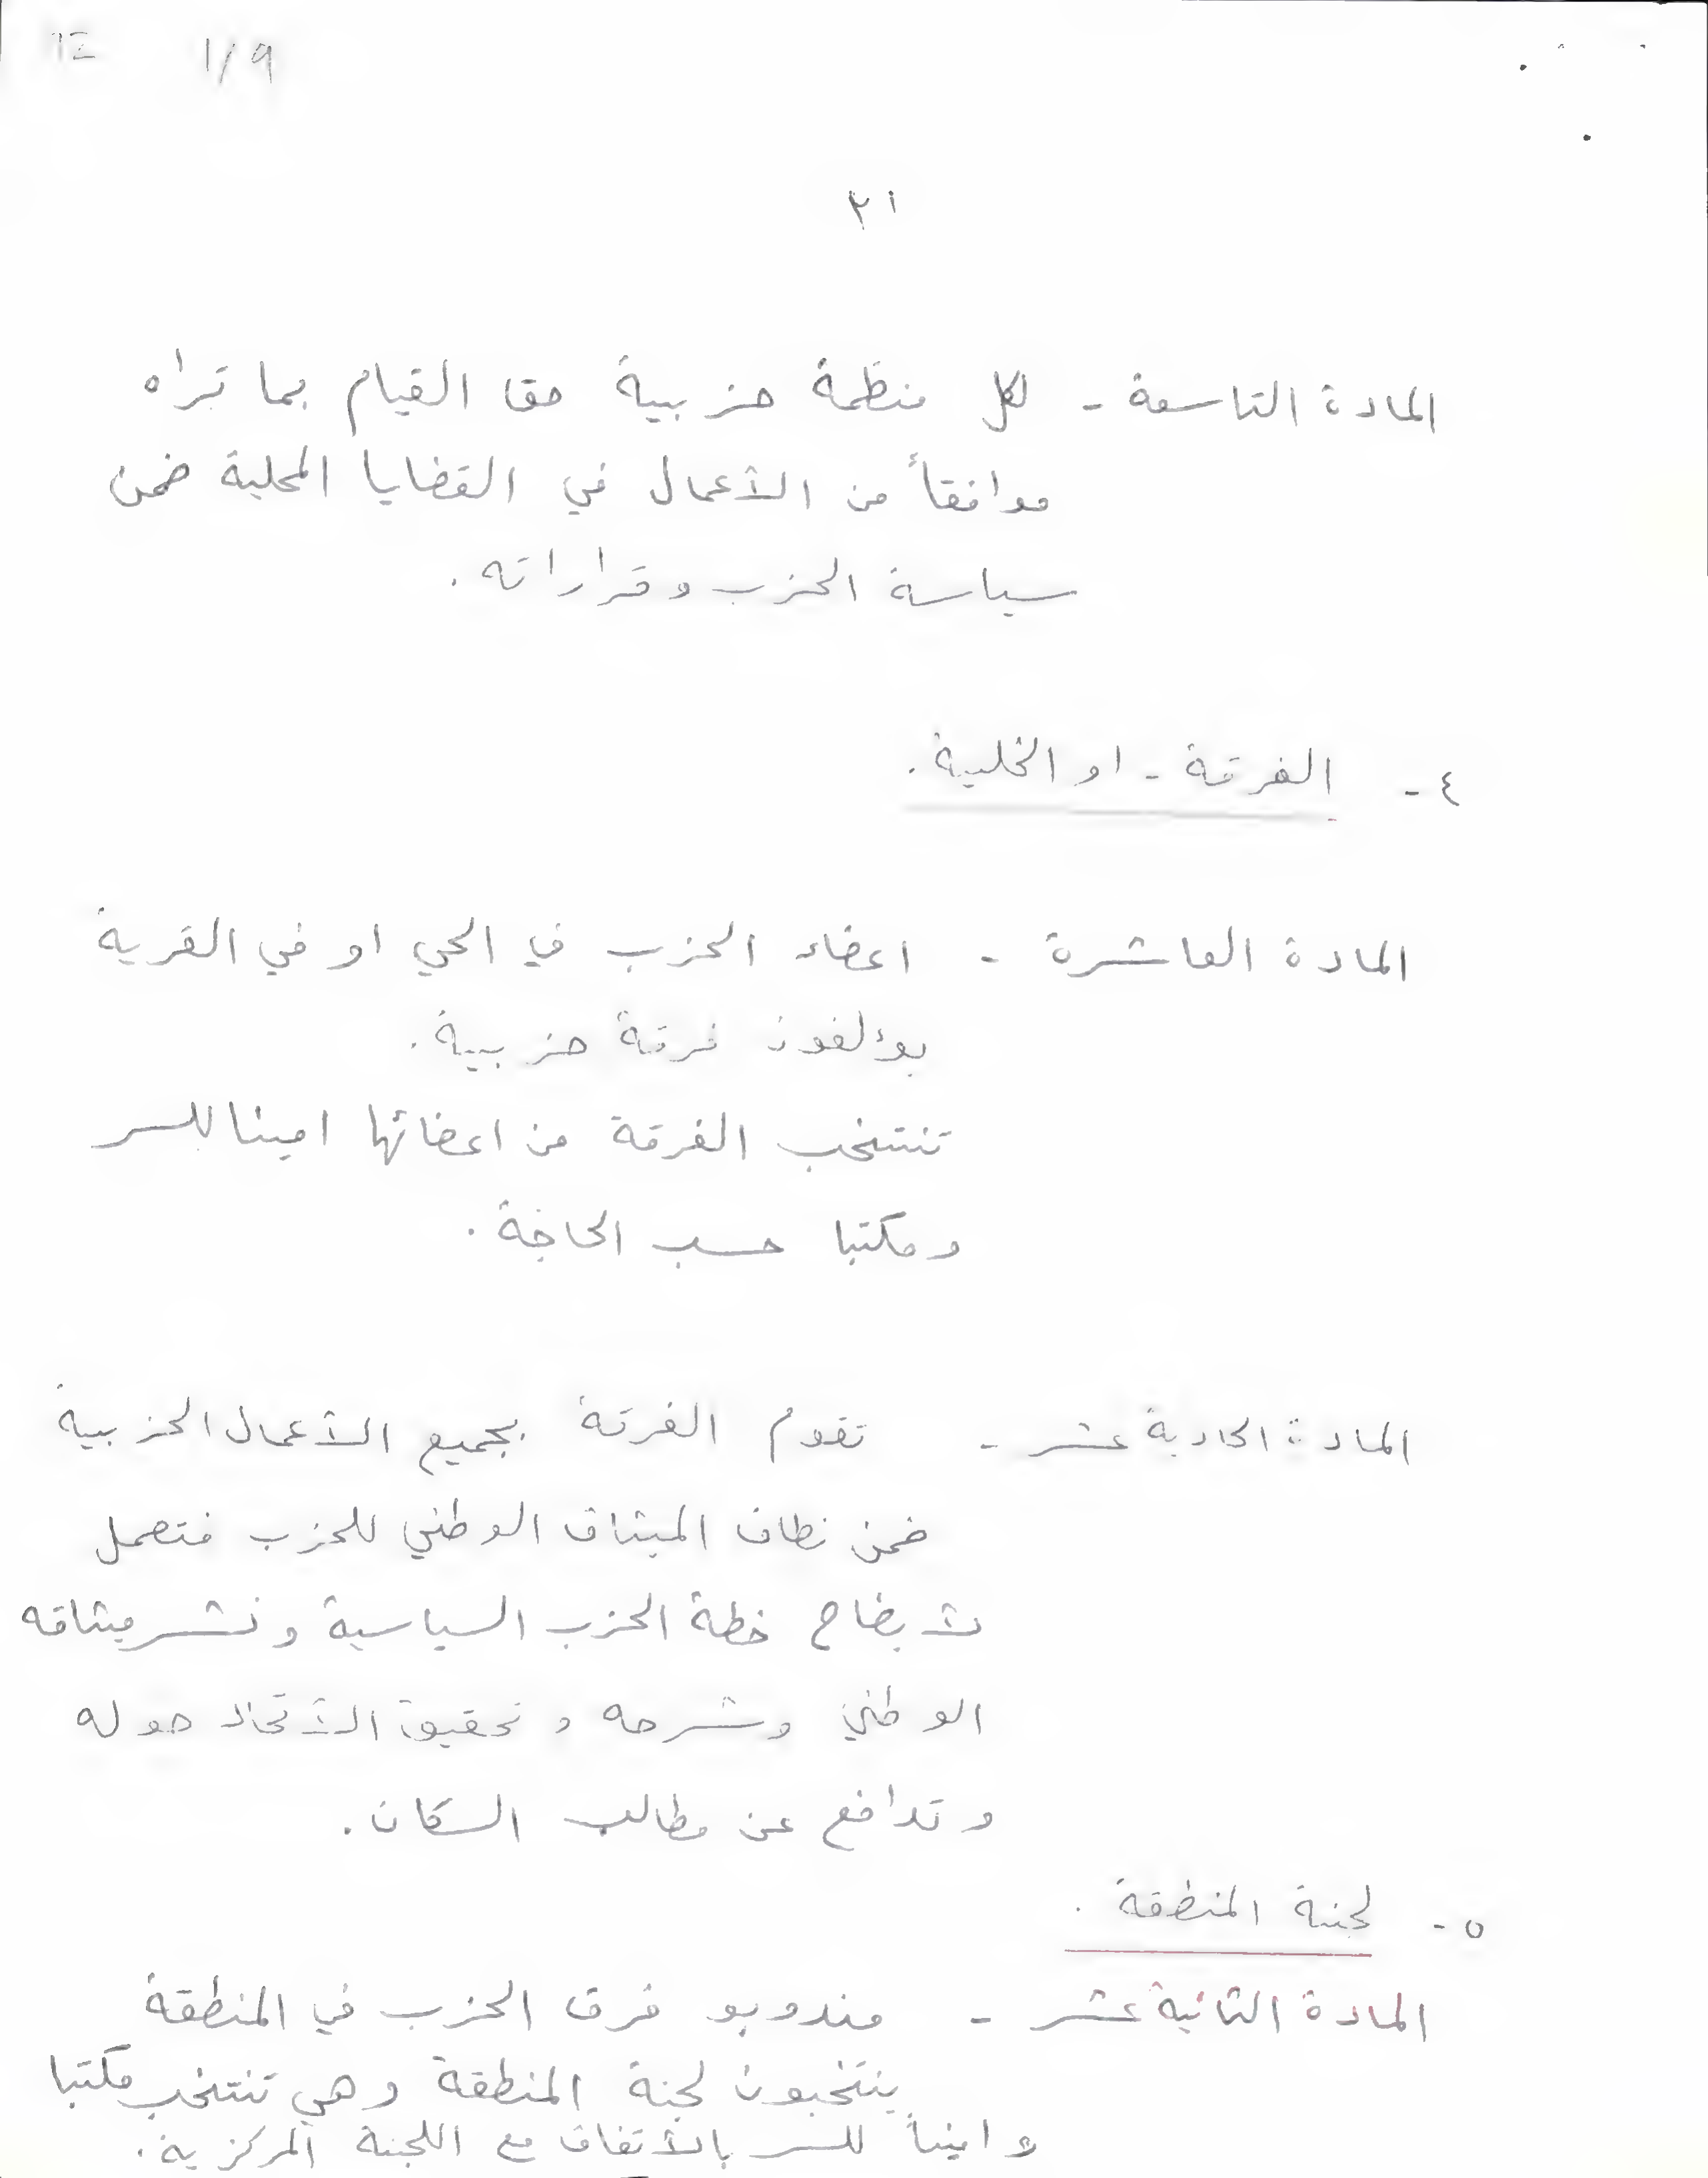 1/9
٢١
المادة التاسعة - لكل منظمة حزبية حق القيام بما تراه
موافقاً من الأعمال في القضايا المحلية ضمن
سياسة الحزب وقراراته .
٤ - الفرقة - او الخلية .
المادة العاشرة - اعضاء الحزب في الحي او في القرية
يوءلفون فرقة حزبية .
تنتخب الفرقة من اعضائها امينا للسر
ومكتبا حسب الحاجة .
المادة الحادية عشر - تقوم الفرقة بجميع الأعمال الحزبية
ضمن نطاق الميثاق الوطني للحزب فتعمل
لأيضاح خطة الحزب السياسية ونشر ميثاقه
الوطني وشرحه و تحقيق الأتحاد حوله
وتدافع عن مطالب السكان .
٥ - لجنة المنطقة .
المادة الثانية عشر - مندوبو فرق الحزب في المنطقة
ينتخبون لجنة المنطقة وهي تنتخب مكتبا
و اميناً للسر بالأتفاق مع اللجنة المركزية .